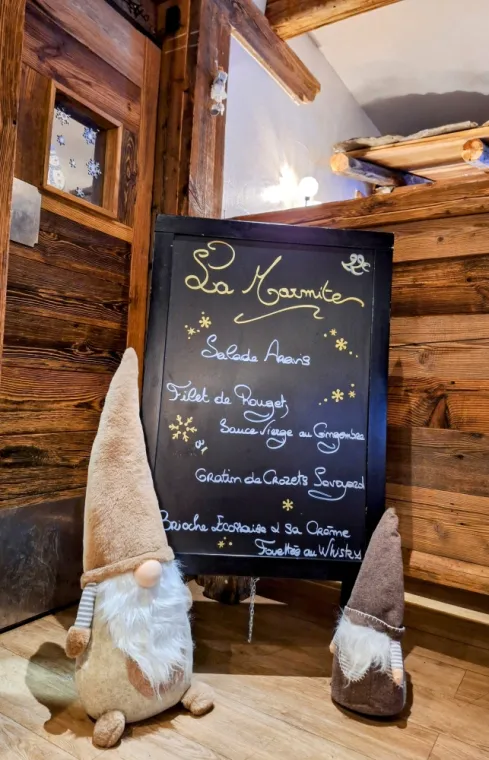 La Marmite
Salade Aravis
Filet de Rouget,
Sauce Vierge au Gingembre
ou
Gratin de Crozets Savoyard
Brioche Ecossaise & Sa Crème
Fouettée au Whisky